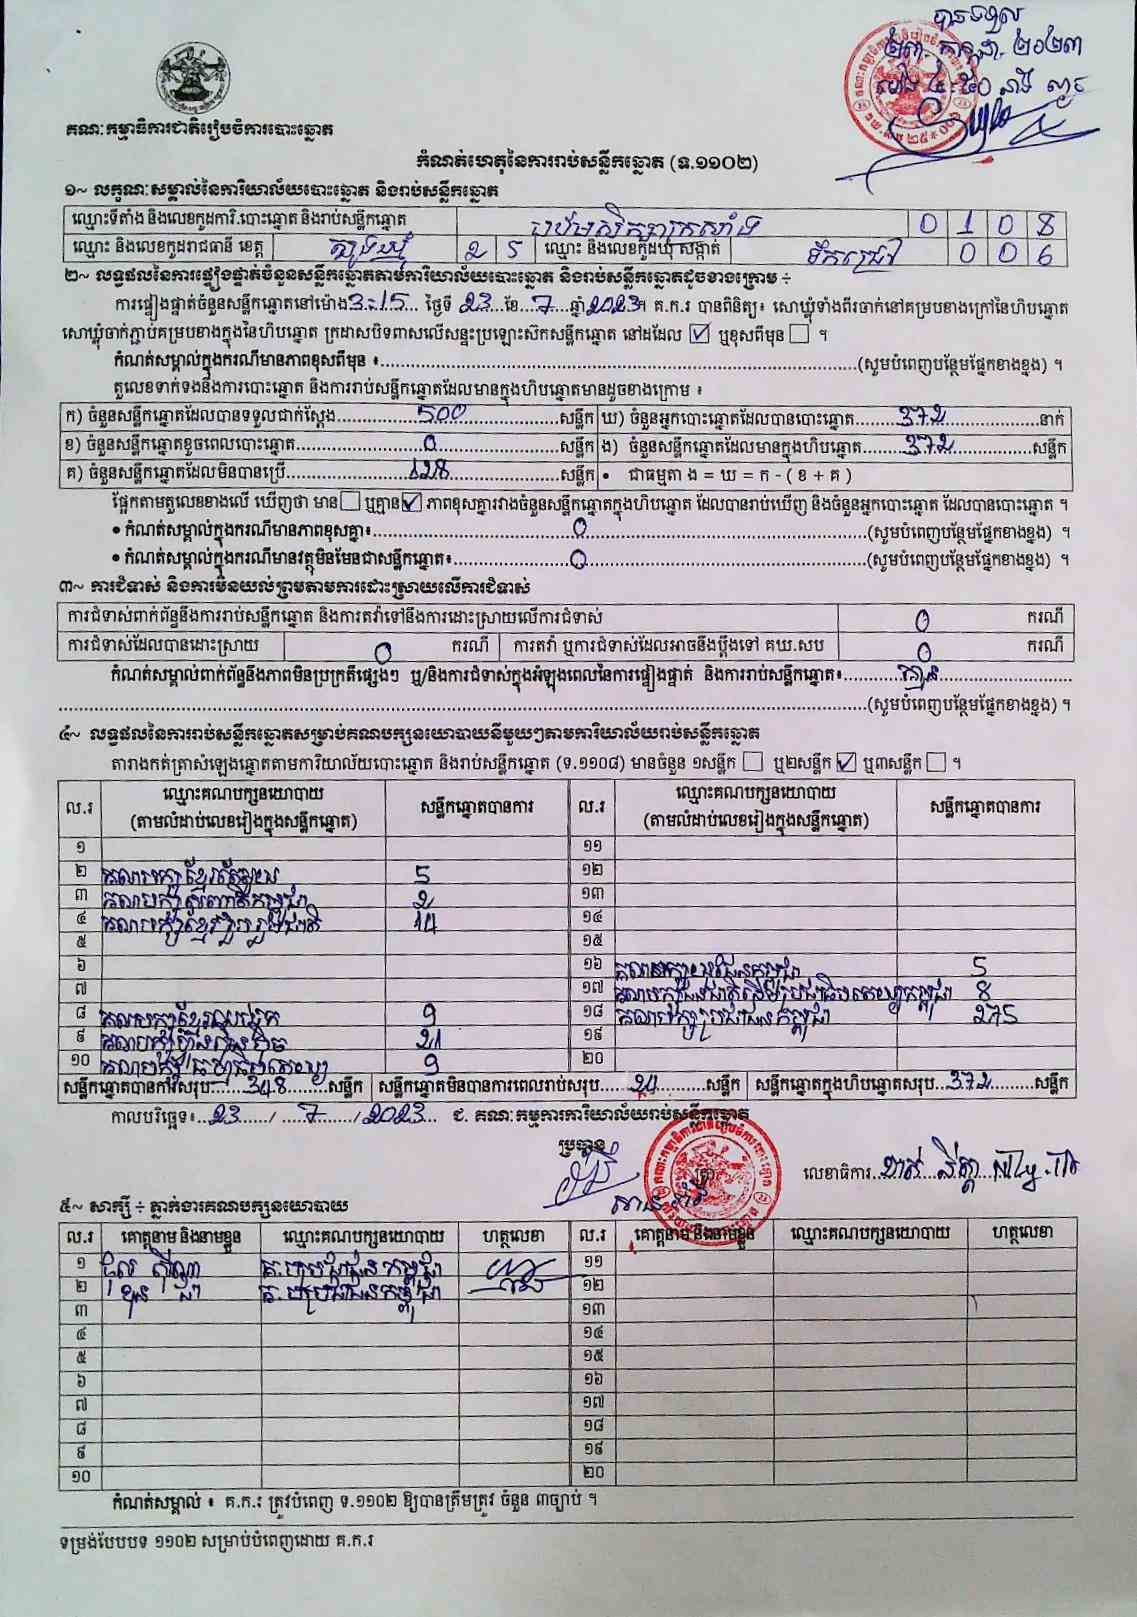 បានទទួល
២៣ កក្កដា ២០២៣
គណៈកម្មាធិការជាតិរៀបចំការបោះឆ្នោត
កំណត់ហេតុនៃការរាប់សន្លឹកឆ្នោត (ទ.១១០២)
១~ លក្ខណៈសម្គាល់នៃការិយាល័យបោះឆ្នោត និងរាប់សន្លឹកឆ្នោត
ឈ្មោះទីតាំង និងលេខកូដការិ.បោះឆ្នោត និងរាប់សន្លឹកឆ្នោត បឋមសិក្សា 0 1 0 8
ឈ្មោះ និងលេខកូដរាជធានី ខេត្ត ត្បូងឃ្មុំ 2 5 ឈ្មោះ និងលេខកូដឃុំ សង្កាត់ ទឹកជ្រៅ 0 0 6
២~ លទ្ធផលនៃការផ្ទៀងផ្ទាត់ចំនួនសន្លឹកឆ្នោតតាមការិយាល័យបោះឆ្នោត និងរាប់សន្លឹកឆ្នោតដូចខាងក្រោម ÷
ការផ្ទៀងផ្ទាត់ចំនួនសន្លឹកឆ្នោតនៅម៉ោង 3:15 ថ្ងៃទី 23 ខែ 7 ឆ្នាំ 2023 ។ គ.ក.រ បានពិនិត្យ៖ សោឃ្លុំទាំងពីរចាក់នៅគម្របខាងក្រៅនៃហិបឆ្នោត
សោឃ្លុំចាក់ភ្ជាប់គម្របខាងក្នុងនៃហិបឆ្នោត ក្រដាសបិទពាសលើសន្ទះប្រឡោះស៊ីកសន្លឹកឆ្នោត នៅដដែល ☑ ឬខុសពីមុន ☐ ។
កំណត់សម្គាល់ក្នុងករណីមានភាពខុសពីមុន ៖ (សូមបំពេញបន្ថែមផ្នែកខាងខ្នង) ។
តួលេខទាក់ទងនឹងការបោះឆ្នោត និងការរាប់សន្លឹកឆ្នោតដែលមានក្នុងហិបឆ្នោតមានដូចខាងក្រោម ៖
ក) ចំនួនសន្លឹកឆ្នោតដែលបានទទួលជាក់ស្តែង 500 សន្លឹក ឃ) ចំនួនអ្នកបោះឆ្នោតដែលបានបោះឆ្នោត 372 នាក់
ខ) ចំនួនសន្លឹកឆ្នោតខូចពេលបោះឆ្នោត 0 សន្លឹក ង) ចំនួនសន្លឹកឆ្នោតដែលមានក្នុងហិបឆ្នោត 372 សន្លឹក
គ) ចំនួនសន្លឹកឆ្នោតដែលមិនបានប្រើ 128 សន្លឹក • ជាធម្មតា ង = ឃ = ក - ( ខ + គ )
ផ្អែកតាមតួលេខខាងលើ ឃើញថា មាន ☐ ឬគ្មាន ☑ ភាពខុសគ្នារវាងចំនួនសន្លឹកឆ្នោតក្នុងហិបឆ្នោត ដែលបានរាប់ឃើញ និងចំនួនអ្នកបោះឆ្នោត ដែលបានបោះឆ្នោត ។
• កំណត់សម្គាល់ក្នុងករណីមានភាពខុសគ្នា៖ 0 (សូមបំពេញបន្ថែមផ្នែកខាងខ្នង) ។
• កំណត់សម្គាល់ក្នុងករណីមានវត្ថុមិនមែនជាសន្លឹកឆ្នោត៖ 0 (សូមបំពេញបន្ថែមផ្នែកខាងខ្នង) ។
៣~ ការជំទាស់ និងការមិនយល់ព្រមតាមការដោះស្រាយលើការជំទាស់
ការជំទាស់ពាក់ព័ន្ធនឹងការរាប់សន្លឹកឆ្នោត និងការតវ៉ាទៅនឹងការដោះស្រាយលើការជំទាស់ 0 ករណី
ការជំទាស់ដែលបានដោះស្រាយ 0 ករណី ការតវ៉ា ឬការជំទាស់ដែលអាចនឹងប្តឹងទៅ គឃ.សប 0 ករណី
កំណត់សម្គាល់ពាក់ព័ន្ធនឹងភាពមិនប្រក្រតីផ្សេងៗ ឬ/និងការជំទាស់ក្នុងអំឡុងពេលនៃការផ្ទៀងផ្ទាត់ និងការរាប់សន្លឹកឆ្នោត៖ គ្មាន
(សូមបំពេញបន្ថែមផ្នែកខាងខ្នង) ។
៤~ លទ្ធផលនៃការរាប់សន្លឹកឆ្នោតសម្រាប់គណបក្សនយោបាយនីមួយៗតាមការិយាល័យរាប់សន្លឹកឆ្នោត
តារាងកត់ត្រាសំឡេងឆ្នោតតាមការិយាល័យបោះឆ្នោត និងរាប់សន្លឹកឆ្នោត (ទ.១១០៨) មានចំនួន ១សន្លឹក ☐ ឬ២សន្លឹក ☑ ឬ៣សន្លឹក ☐ ។
ល.រ ឈ្មោះគណបក្សនយោបាយ សន្លឹកឆ្នោតបានការ ល.រ ឈ្មោះគណបក្សនយោបាយ សន្លឹកឆ្នោតបានការ
(តាមលំដាប់លេខរៀងក្នុងសន្លឹកឆ្នោត) (តាមលំដាប់លេខរៀងក្នុងសន្លឹកឆ្នោត)
១ ១១
២ គណបក្សខ្មែរ 5 ១២
៣ គណបក្ស 2 ១៣
៤ គណបក្សខ្មែររួបរួមជាតិ 14 ១៤
៥ ១៥
៦ ១៦ គណបក្សយុវជនកម្ពុជា 5
៧ ១៧ គណបក្សជនជាតិដើមប្រជាធិបតេយ្យកម្ពុជា 8
៨ គណបក្សខ្មែរ 9 ១៨ គណបក្សប្រជាជនកម្ពុជា 275
៩ គណបក្ស 21 ១៩
១០ គណបក្សធម្មាធិបតេយ្យ 9 ២០
សន្លឹកឆ្នោតបានការសរុប 348 សន្លឹក សន្លឹកឆ្នោតមិនបានការពេលរាប់សរុប 24 សន្លឹក សន្លឹកឆ្នោតក្នុងហិបឆ្នោតសរុប 372 សន្លឹក
កាលបរិច្ឆេទ៖ 23 / 7 / 2023 ជ. គណៈកម្មការការិយាល័យរាប់សន្លឹកឆ្នោត
ប្រធាន
លេខាធិការ
៥~ សាក្សី ÷ ភ្នាក់ងារគណបក្សនយោបាយ
ល.រ គោត្តនាម និងនាមខ្លួន ឈ្មោះគណបក្សនយោបាយ ហត្ថលេខា ល.រ គោត្តនាម និងនាមខ្លួន ឈ្មោះគណបក្សនយោបាយ ហត្ថលេខា
១ គ.បប្រជាជនកម្ពុជា ១១
២ គ.បប្រជាជនកម្ពុជា ១២
៣ ១៣
៤ ១៤
៥ ១៥
៦ ១៦
៧ ១៧
៨ ១៨
៩ ១៩
១០ ២០
កំណត់សម្គាល់ ៖ គ.ក.រ ត្រូវបំពេញ ទ.១១០២ ឱ្យបានត្រឹមត្រូវ ចំនួន ៣ច្បាប់ ។
ទម្រង់បែបបទ ១១០២ សម្រាប់បំពេញដោយ គ.ក.រ